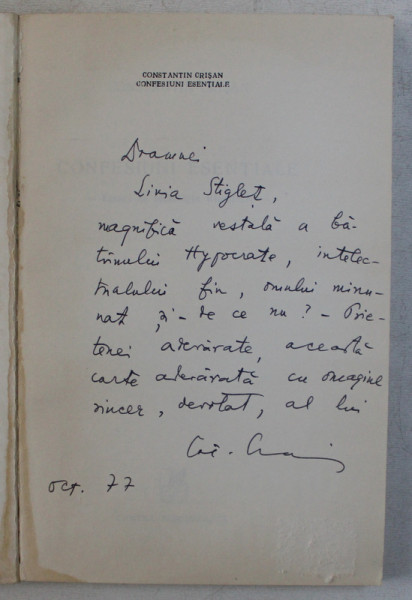 CONSTANTIN CRIȘAN
CONFESIUNI ESENȚIALE
Doamnei
Livia Stigleț,
magnifică vestală a bă-
trînului Hypocrate, intelec-
tualului fin, omului minu-
nat și - de ce nu? - Prie-
tenei adevărate, această
carte adevărată cu omagiul
sincer, devotat, al lui
oct. 77